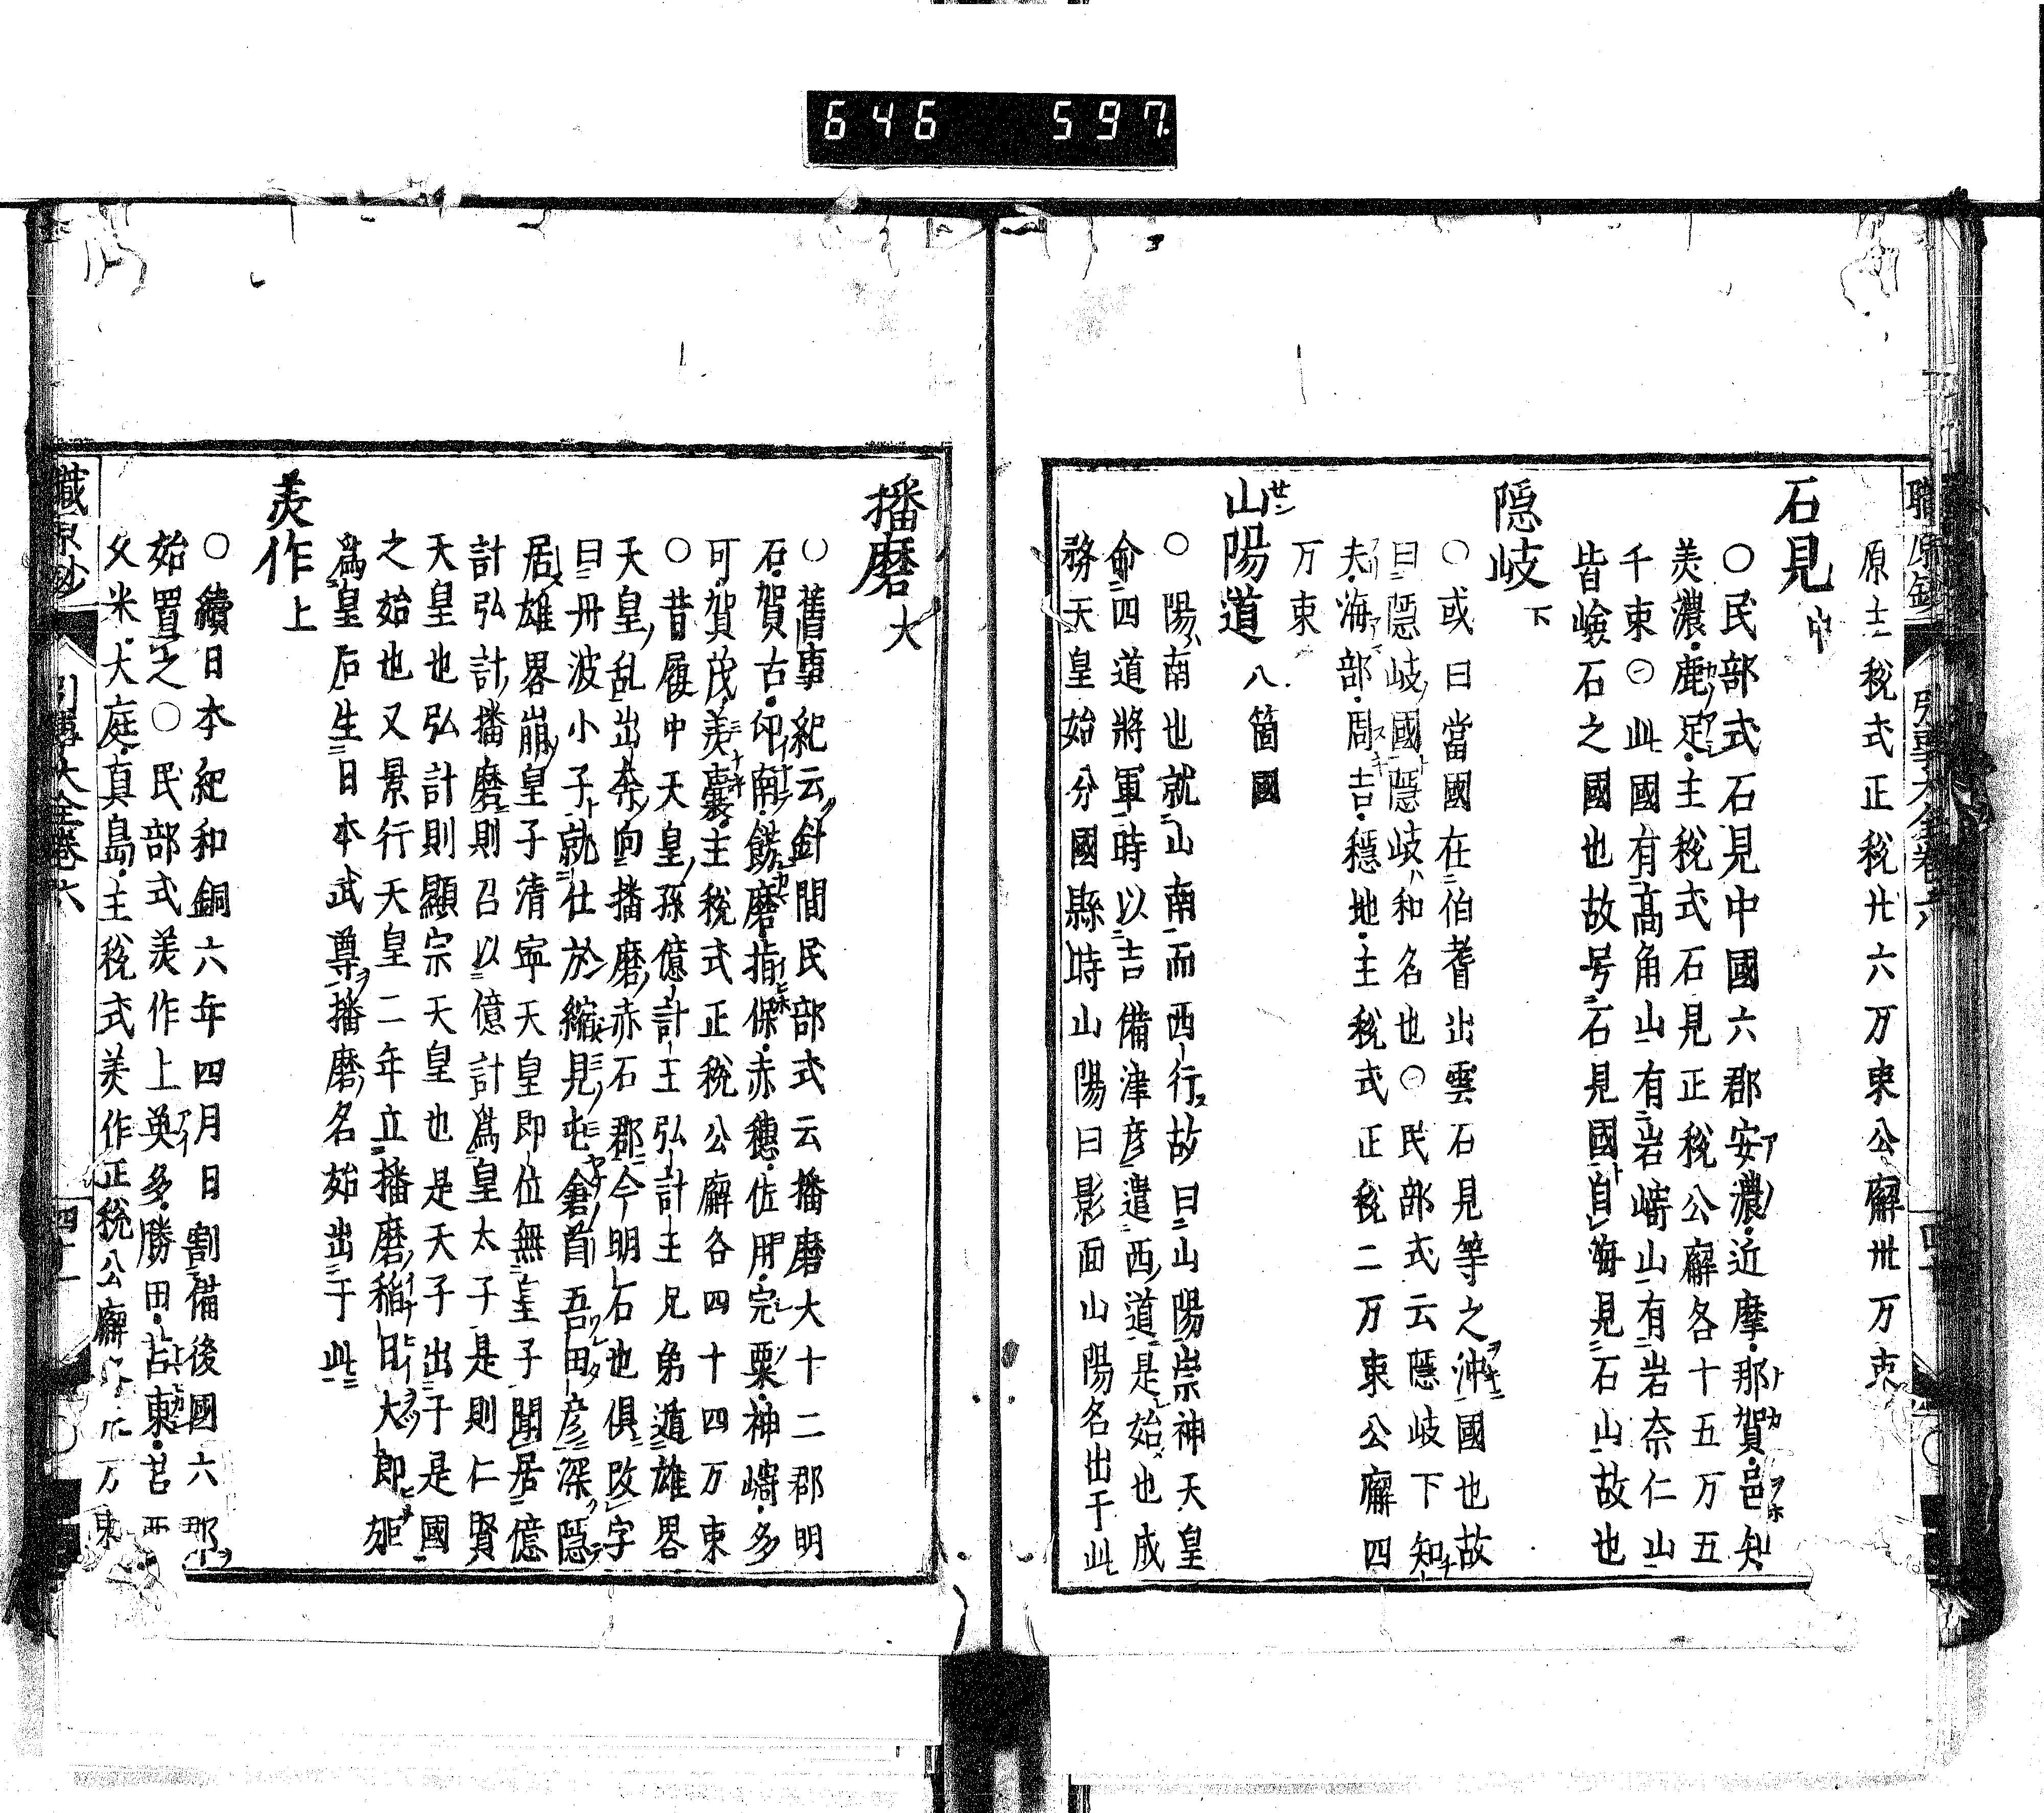 646 597.
原 主税式正税廿六万束公廨卅万束
石見 中
〇民部式石見中國六郡安濃・近摩・那賀・邑知
美濃・鹿足・主税式石見正税公廨各十五万五
千束〇此國有高角山有岩﨑山有岩奈仁山
皆嶮石之國也故号石見國自海見石山故也
隠岐 下
〇或曰當國在伯耆出雲石見等之沖國也故
曰隠岐國隠岐和名也〇民部式云隠岐下知
夫・海部・周吉・穏地・主税式正税二万束公廨四
万束
山陽道 八箇國
〇陽南也就山南而西行故曰山陽崇神天皇
命四道將軍時以吉備津彦遣西道是始也成
務天皇始分國縣時山陽曰影面山陽名出于此
播磨 大
〇舊事紀云針間民部式云播磨大十二郡明
石・賀古・印南・餝磨・揖保・赤穂・佐用・完粟・神﨑・多
可・賀茂・美囊・主税式正税公廨各四十四万束
〇昔履中天皇孫億計王弘計王兄弟遁雄畧
天皇乱出奔向播磨赤石郡今明石也倶改字
曰丹波小子就仕於縮見屯倉首吾田彦深隠
居雄畧崩皇子清寧天皇即位無皇子聞居億
計弘計播磨則召以億計爲皇太子是則仁賢
天皇也弘計則顯宗天皇也是天子出于是國
之始也又景行天皇二年立播磨稲日大郎姫
爲皇后生日本武尊播磨名始出于此
美作 上
〇續日本紀和銅六年四月日割備後國六郡
始置之〇民部式美作上英多・勝田・苫東・苫西
久米・大庭・真島・主税式美作正税公廨 万束
職原鈔 引事大全巻六 四十一